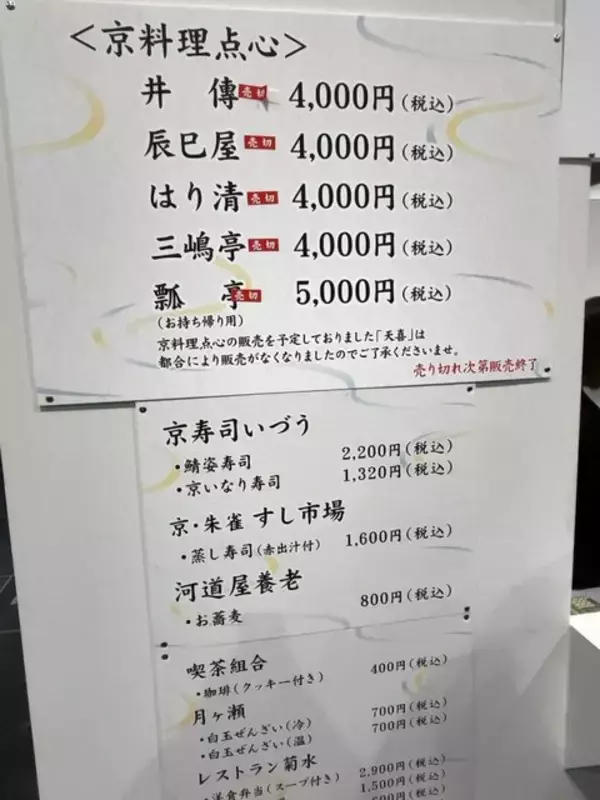 ＜京料理点心＞
井　傳 売切 4,000円(税込)
辰巳屋 売切 4,000円(税込)
はり清 売切 4,000円(税込)
三嶋亭 売切 4,000円(税込)
瓢　亭 売切 5,000円(税込)
(お持ち帰り用)
京料理点心の販売を予定しておりました「天喜」は
都合により販売がなくなりましたのでご了承くださいませ。
売り切れ次第販売終了
京寿司いづう
・鯖姿寿司 2,200円(税込)
・京いなり寿司 1,320円(税込)
京・朱雀 すし市場
・蒸し寿司(赤出汁付) 1,600円(税込)
河道屋養老
・お蕎麦 800円(税込)
喫茶組合
・珈琲(クッキー付き) 400円(税込)
月ヶ瀬
・白玉ぜんざい(冷) 700円(税込)
・白玉ぜんざい(温) 700円(税込)
レストラン菊水
・洋食弁当(スープ付き) 2,900円(税込)
1,500円(税込)